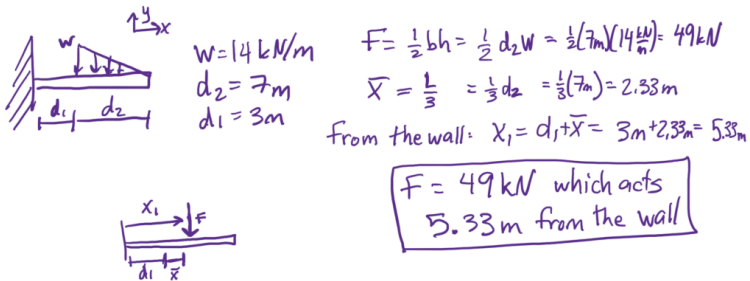 y
x
w
d₁
d₂
w = 14 kN/m
d₂ = 7m
d₁ = 3m
F = ½bh = ½ d₂w = ½(7m)(14 kN/m) = 49kN
x̄ = L/3 = ⅓d₂ = ⅓(7m) = 2.33m
from the wall: x₁ = d₁+x̄ = 3m+2.33m = 5.33m
F = 49kN which acts
5.33m from the wall
x₁
F
d₁
x̄